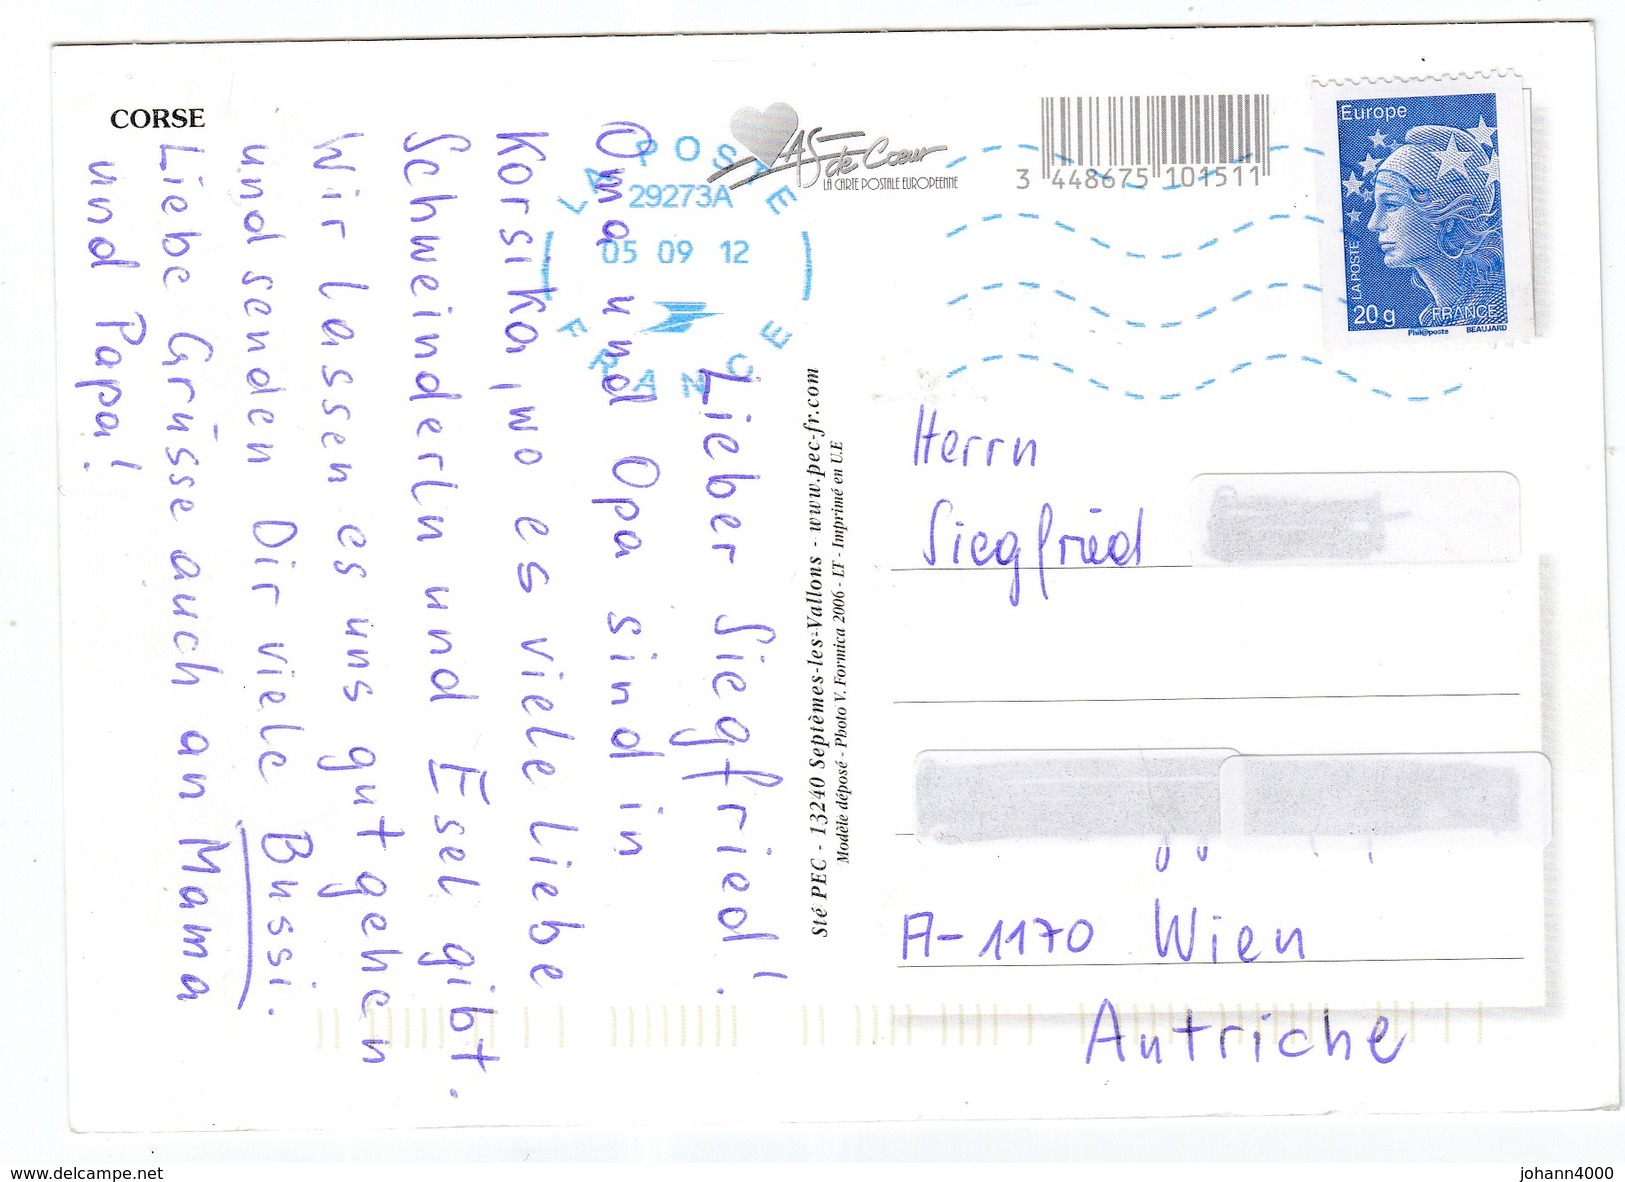 CORSE
Lieber Siegfried!
Oma und Opa sind in
Korsika, wo es viele liebe
Schweinderln und Esel gibt.
Wir lassen es uns gut gehen
und senden Dir viele Bussi.
Liebe Grüsse auch an Mama
und Papa!
LA POSTE
29273A
05 09 12
FRANCE
AS de Cœur
LA CARTE POSTALE EUROPEENNE
3 448675 101511
Europe
LA POSTE
20 g FRANCE
Phil@poste BEAUJARD
Sté PEC - 13240 Septèmes-les-Vallons - www.pec-fr.com
Modèle déposé - Photo V. Formica 2006 - LT - Imprimé en U.E
Herrn
Siegfried
A-1170 Wien
Autriche
www.delcampe.net
johann4000